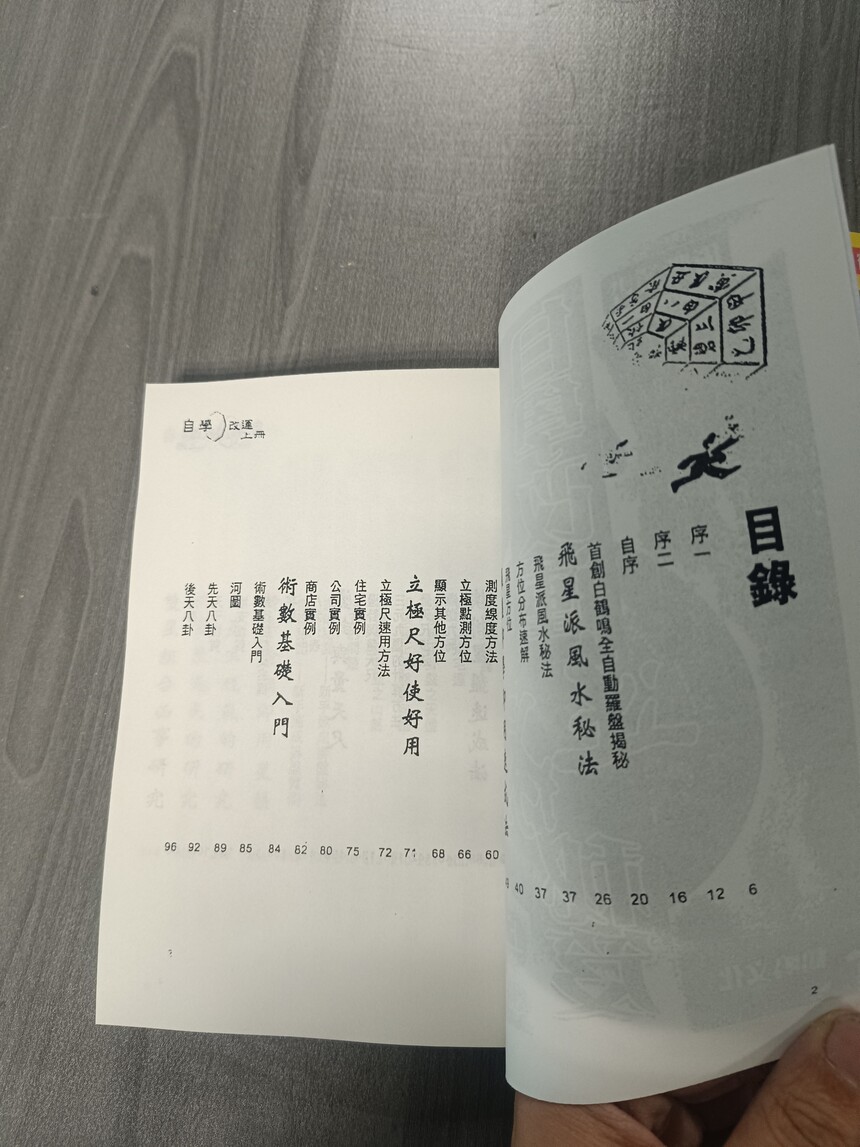 目錄
序一 6
序二 12
自序 16
首創白鶴鳴全自動羅盤揭秘 20
飛星派風水秘法 26
飛星派風水秘法 37
方位分布速解 37
飛星方位 40
2
自學 改運
上冊
測度線度方法 60
立極點測方位 66
顯示其他方位 68
立極尺好使好用 71
立極尺速用方法 72
住宅實例 75
公司實例 80
商店實例 82
術數基礎入門 84
術數基礎入門 85
河圖 89
先天八卦 92
後天八卦 96